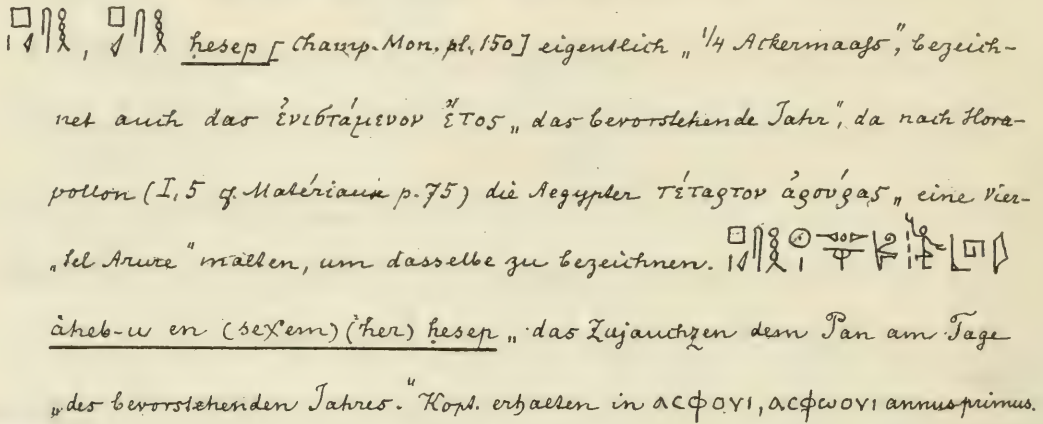 , ḥesep [Champ. Mon. pl. 150] eigentlich „1/4 Ackermaaſs“, bezeich-
net auch das ἐνιστάμενον ἔτος „das bevorstehende Jahr“, da nach Hora-
pollon (I, 5 cf. Matériaux p. 75) die Aegypter τέταρτον ἀρούρας „eine Vier-
„tel Arure“ malten, um dasselbe zu bezeichnen.
àheb-u en (seχem) (ḥer) ḥesep „das Zujauchzen dem Pan am Tage
„des bevorstehenden Jahres.“ Kopt. erhalten in ⲁⲥⲫⲟⲩⲓ, ⲁⲥⲫⲱⲟⲩⲓ annus primus.